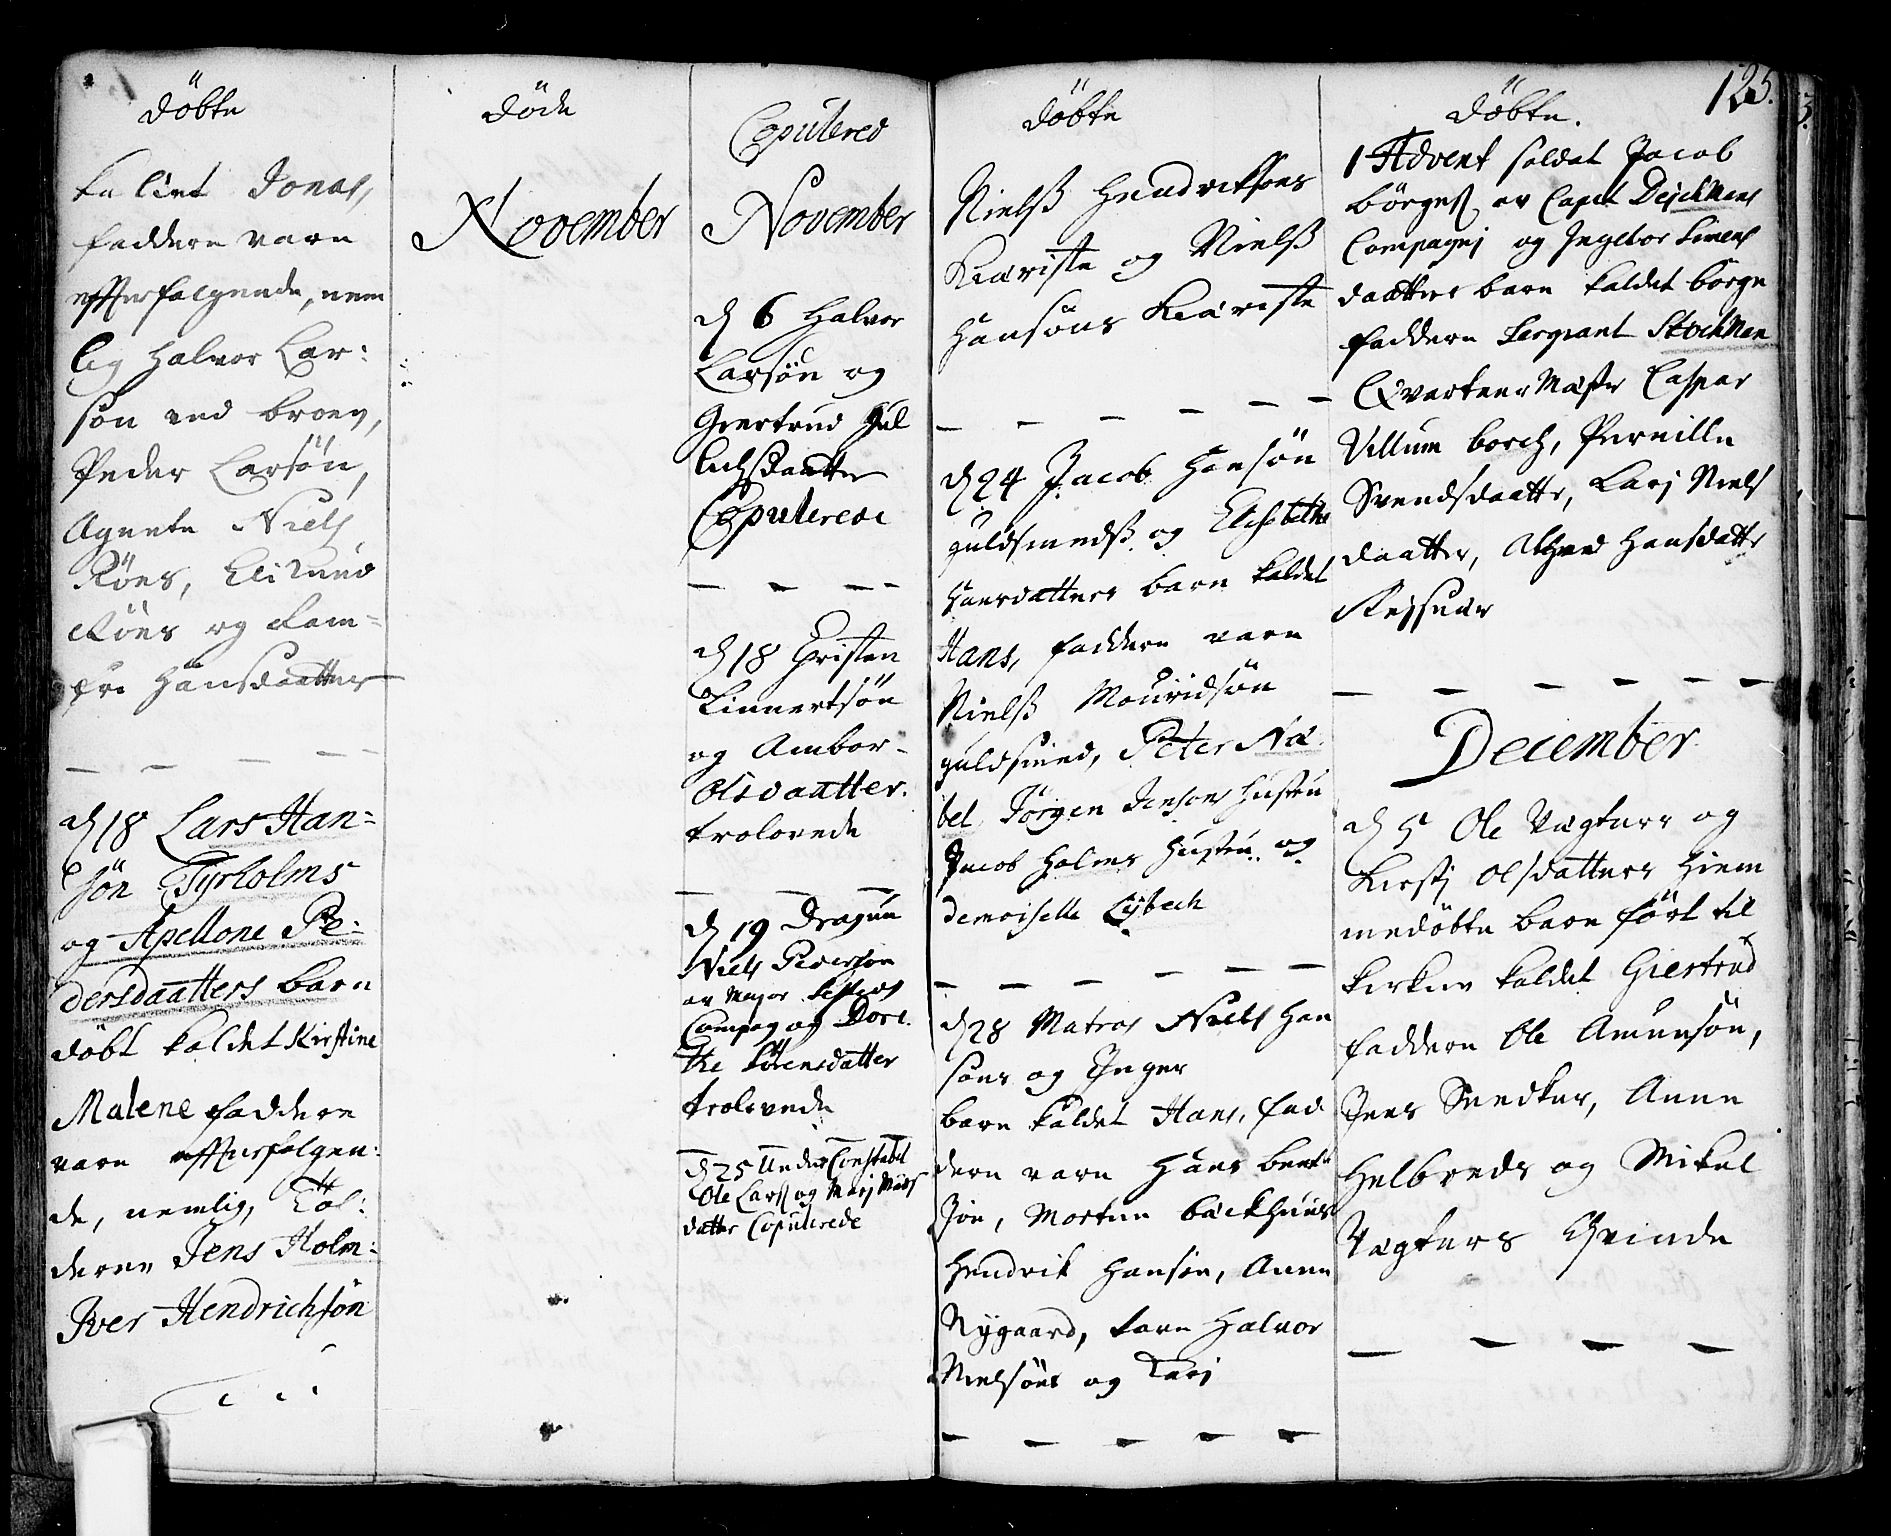 Döbte
kaldet Jonas,
faddere vare
efterfølgende, nem
lig Halvor Lar:
søn ved broen,
Peder Larsøn,
Agnete Niels
Röes,
Röes og
Hansdaatter
d 18 Lars Han-
søn Tyrholms
og Apellone Pe-
dersdaatters barn
döbt kaldet Kirstine
Malene faddere
vare efterfølgen:
de, nemlig,
deren Jens Holm:
Iver Hendrichsøn
Döde
November
Copulered
November
d 6 Halvor
Larsøn og
Giertrud Gul
lichsdaatter
Copulerede
d 18 Christen
Linnertsøn
og Ambor
Olsdaatter
trolovede
d 19 Dragun
Niels Pedersøn
av Major
Compag og Dore
the Sörensdatter
trolovede
d 25 Under Constabel
Ole Larss og Marj Niels
datter Copulerede
Döbte
Nielss Hendriksøns
Kieriste og Nielss
Hansøns Kieriste
d 24 Jacob Hansøn
guldsmeds og Elisabethe
Hansdatters barn kaldet
Hans, faddere vare
Nielss Mouridsøn
guldsmed, Peter Na
bel Jörgen Jensøns hustru
Jacob Holms hustru og
demoiselle Lybech
d 28 Matros Niels Han
søns og Inger
barn kaldet Hans, fad
dere vare Hans bent
søn, Morten backhuus
Hendrik Hansøn, Anne
Nygaard, Karn Halvor
Nielsøns og Karj
125.
Döbte.
1 Advent soldat Jacob
börges av Capit Deichmans
Compagnj og Ingebor Simens
daatters barn kaldet börge
faddere Sergiant Stockman
Qvarteer Mester Caspar
Villum borch, Pernille
Svendsdaatter, Karj Niels
daatter, Hansdatter
d 5 Ole Vægters og
Kirstj Olsdatters Hiem
medöbte barn fört til
kirken kaldet Giertrud
faddere Ole Amunsøn,
Jens Snedker, Anne
Helbreds og Mikel
Vægters Qvinde
December